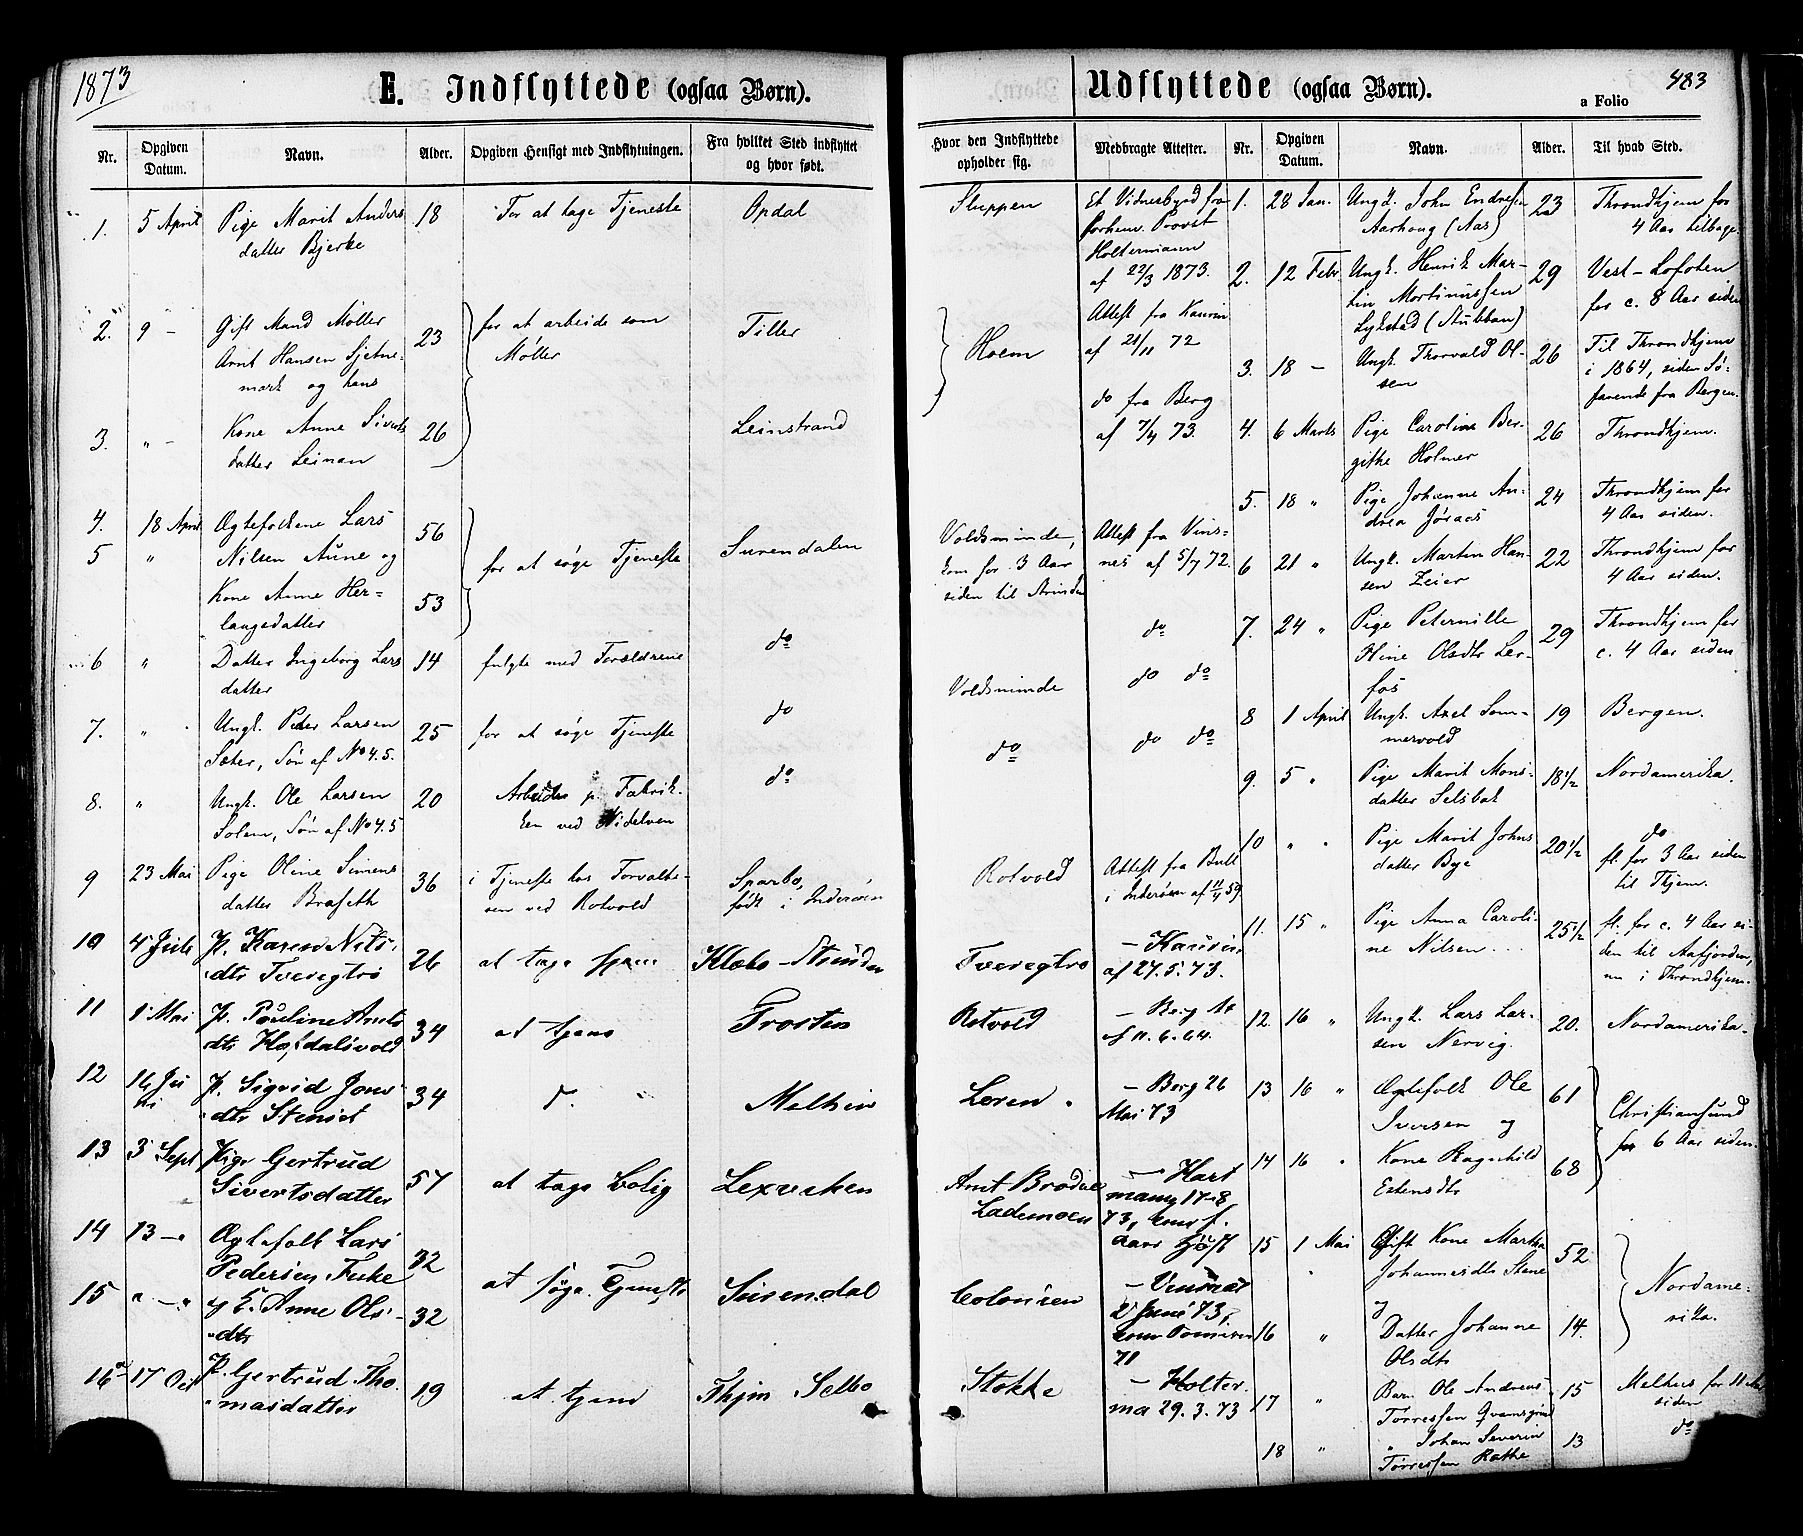 1873
E. Indflyttede (ogsaa Børn).
Nr.
Opgiven Datum.
Navn.
Alder.
Opgiven Hensigt med Indflytningen.
Fra hvilket Sted indflyttet og hvor født.
Hvor den Indflyttede opholder sig.
Medbragte Attester.
1. 5 April Pige Marit Anders 18 For at tage Tjeneste Opdal Sluppen Et Vidnesbyrd fra
datter Bjerke forhenv. Provst
Holtermann
af 22/3 1873.
2. 9 - Gift Mand Møller 23 for at arbeide som Tiller Holem Attest fra
Arnt Hansen Sjetne- Møller af 21/11 72
mark og hans
3. " - Kone Anne Siverts 26 Leinstrand do fra Berg
datter Leinan af 7/4 73.
4. 18 April Ægtefolkene Lars 56 for at søge Tjeneste Surendalen Voldsminde, Attest fra
5 " Nilsen Aune og kom for 3 Aar af 5/7 72.
Kone Anne Her- 53 siden til Strinden
laugsdatter
6 " Datter Ingeborg Lars 14 fulgte med Forældrene do Voldsminde do do
datter
7. " Ungk. Peder Larsen 25 for at søge Tjeneste do do do do
Sæter, Søn af No 4.5.
8. " Ungk. Ole Larsen 20 Arbeider p. Fabrik- do
Solem, Søn af No 4.5 ken ved Nidelven
9 23 Mai Pige Oline Simens 36 i Tjeneste hos Forvalte- Sparbo, Rotvold Attest fra Bull
datter Brafeth ren ved Rotvold født i Inderøen i Inderøen af
10 4 Juli P. Karen Nils 26 at tage Klæbo - Strinden Tveregtrø
dtr Tveregtrø af 27.5.73.
11 1 Mai P. Pauline Arnts 34 at tjene Frosten Rotvold - Berg
dtr Hofdalsvold af 11.6.64.
12 16 Juni P. Sigrid Jons 34 d. " Melhus Leren - Berg 26
dtr Mai 73
13 3 Sept Pige Gertrud 57 at tage Bolig Lexviken Arnt Brodal - Hart
Sivertsdatter Lademoen mann 17-8
73,
14 13 - Ægtefolk Lars 32 at søge Tjeneste Surendal
Pedersen
15 " - " og E. Anne Ols 32
dtr
16 17 Oct P. Gertrud Tho- 19 at tjene Thjm Selbo Stokke - Holter-
masdatter ma 29.3.73
Udflyttede (ogsaa Børn).
a Folio 483
Nr.
Opgiven Datum.
Navn.
Alder.
Til hvad Sted.
1. 28 Jan. Ungk. John Endresen 23 Throndhjem for
Aarhoug (Aas) 4 Aar tilbage.
2. 12 Febr. Ungk. Henrik Mar- 29 Vest-Lofoten
tin Mortinussen for c. 8 Aar siden
Lykstad (Stubban)
3. 18 - Ungk. Thorvald Ol- 26 Til Throndhjem
sen i 1864, siden Sø-
farende fra Bergen.
4. 6 Marts Pige Caroline Ber- 26 Throndhjem.
githe Holmer
5. 18 " Pige Johanne An- 24 Throndhjem for
drea 4 Aar siden.
6 21 " Ungk. Martin Han- 22 Throndhjem for
sen Zeier 4 Aar siden.
7. 24 " Pige Peternille 29 Throndhjem for
Stine Olsdtr Ler- c. 4 Aar siden
fos
8 1 April Ungk. Axel Som- 19 Bergen.
mervold
9. 5 " Pige Marit Mons- 18 1/2 Nordamerika.
datter Selsbak
10 " " Pige Marit Johns 20 1/2 do
datter Bye fl. for 3 Aar siden
til Thjem.
11. 15 " Pige Anna Caroli- 25 1/2 fl. for c. 4 Aar si-
ne Nilsen den til Aafjorden,
nu i Throndhjem.
12. 16 " Ungk. Lars Lar- 20. Nordamerika.
sen Nervig.
13 16 " Ægtefolk Ole 61 Christiansund
Iversen og for 6 Aar siden.
14 16 " Kone Ragnhild 68
Estensdtr
15 1 Mai Gift Kone Martha 52 Nordame-
Johannesdtr Stene rika.
og
16 " Datter Johanne 14.
Olsdtr
17 " Barn Ole Andreas 15 Melhus for 11 Aar
Torressen siden
18 " " Johan Severin 13 do
Torressen Rathe